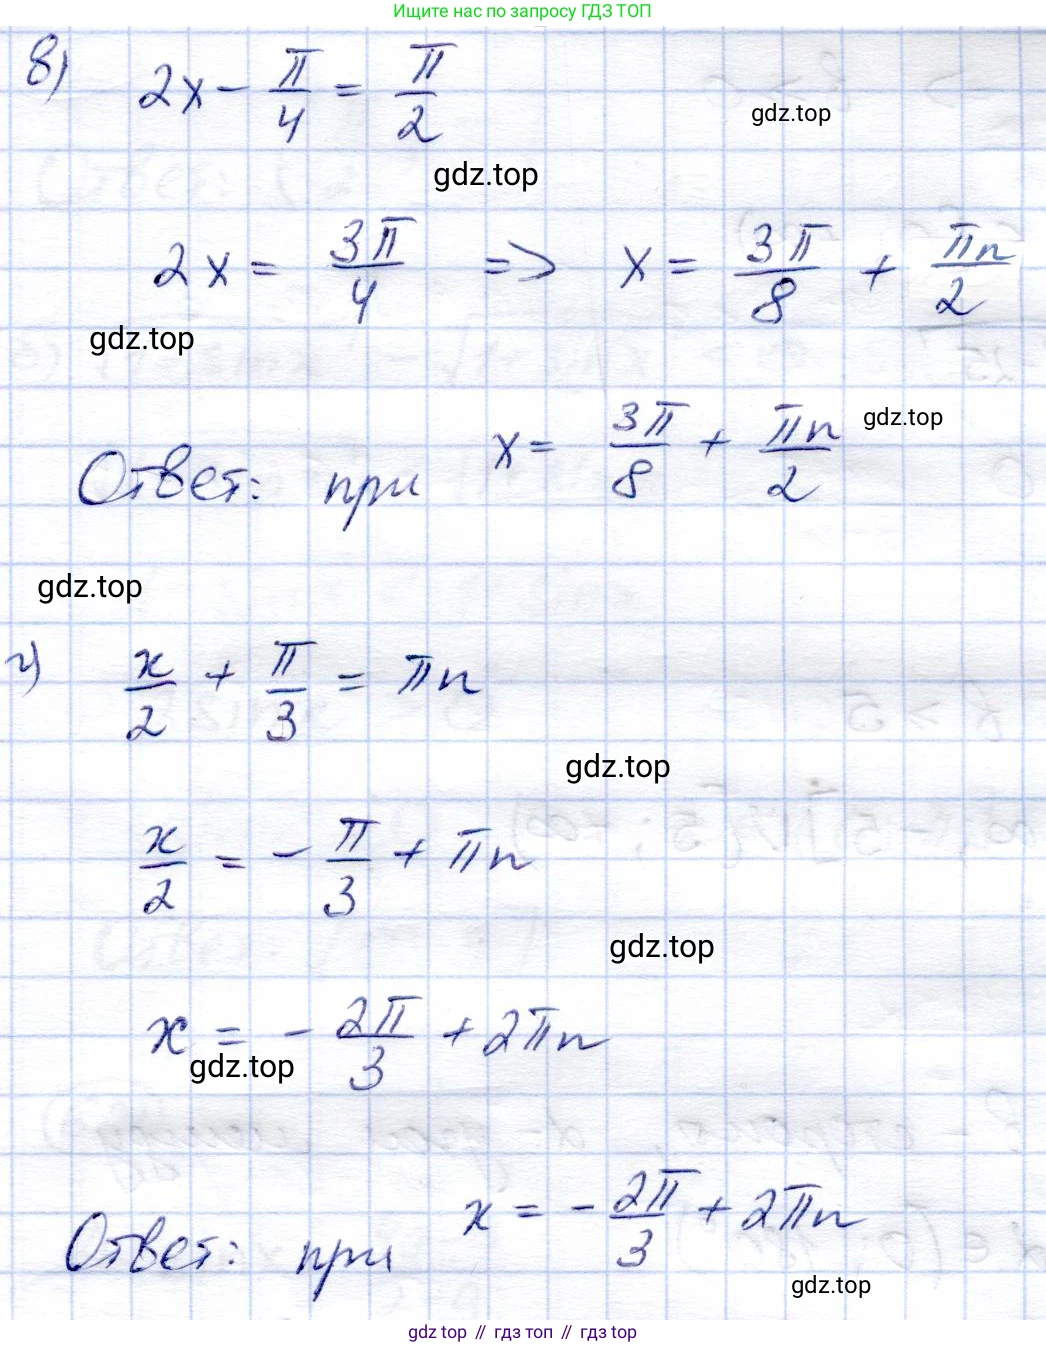 Ищите нас по запросу ГДЗ ТОП
в) 2x - π/4 = π/2
gdz.top
gdz.top
2x = 3π/4 => x = 3π/8 + πn/2
gdz.top
Ответ: при x = 3π/8 + πn/2
gdz.top
gdz.top
г) x/2 + π/3 = πn
gdz.top
x/2 = - π/3 + πn
gdz.top
x = - 2π/3 + 2πn
gdz.top
Ответ: при x = - 2π/3 + 2πn
gdz.top
gdz top // гдз топ // гдз top